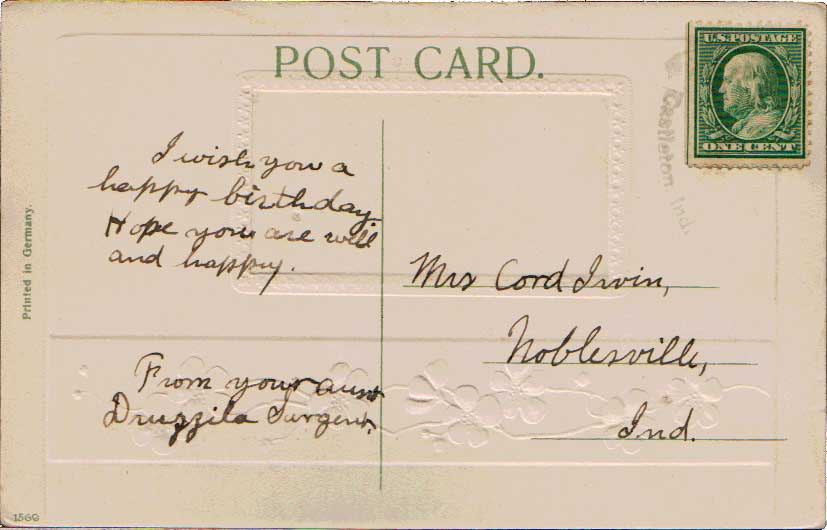 POST CARD.
U.S. POSTAGE
ONE CENT
Castleton Ind.
I wish you a
happy birthday.
Hope you are well
and happy.
From your aunt
Druzzila Surgent.
Mrs Cord Irvin,
Noblesville,
Ind.
Printed in Germany.